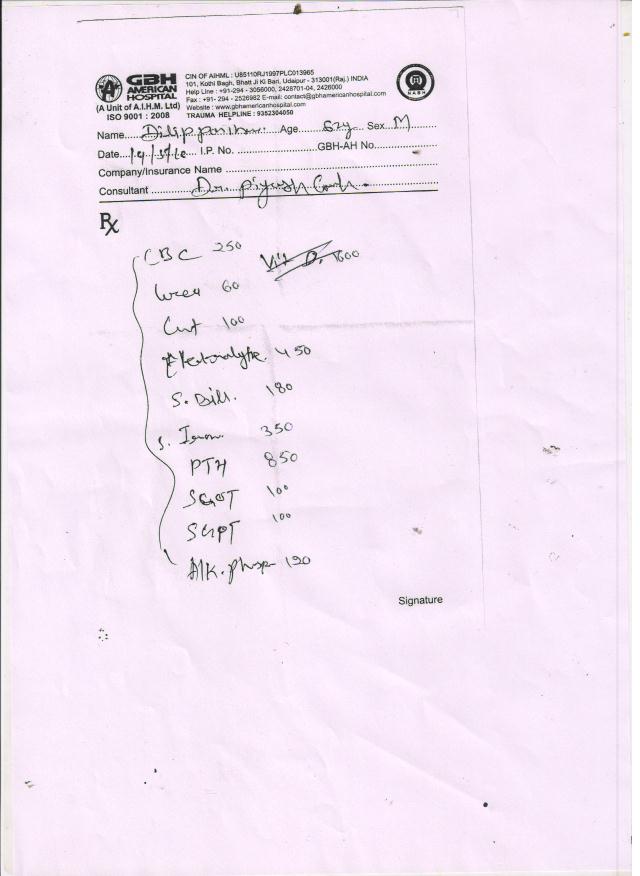 GBH
AMERICAN
HOSPITAL
(A Unit of A.I.H.M. Ltd)
ISO 9001 : 2008
CIN OF AIHML : U85110RJ1997PLC013965
101, Kothi Bagh, Bhatt Ji Ki Bari, Udaipur - 313001(Raj.) INDIA
Help Line : +91-294 - 3056000, 2428701-04, 2426000
Fax : +91- 294 - 2526982 E-mail: contact@gbhamericanhospital.com
Website : www.gbhamericanhospital.com
TRAUMA HELPLINE : 9352304050
NABH
Name Dilip Age 62y Sex M
Date I.P. No. GBH-AH No.
Company/Insurance Name
Consultant Dr. Piyush
Rx
CBC 250 Vit D. 1600
Urea 60
100
Electrolyte 450
S. Bill. 180
S. Iron 350
PTH 850
SGOT 100
SGPT 100
Alk. phosp
Signature